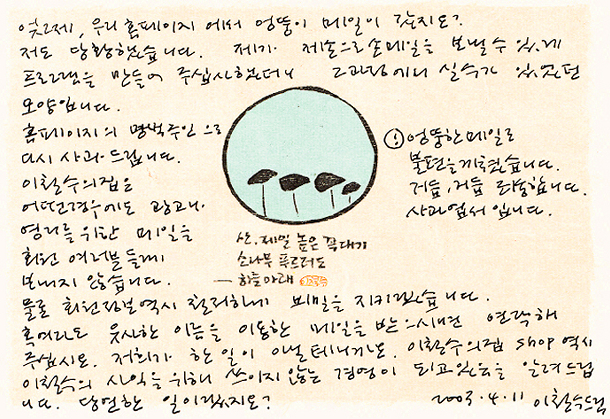 엊그제, 우리 홈페이지에서 엉뚱이 메일이 갔지요?
저도 당황했습니다. 제가 제손으로 손메일을 보낼 수 있게
프로그램을 만들어 주십사 했더니 그 과정에서 실수가 있었던
모양입니다.
홈페이지의 명백주인으로
다시 사과드립니다.
이철수의 집은
어떤 경우에도 광고나
영리를 위한 메일을
회원 여러분들께
보내지 않습니다.
! 엉뚱한 메일로
불편을 끼쳤습니다.
거듭, 거듭 죄송합니다.
사과엽서입니다.
산. 제일 높은 꼭대기
소나무 푸르러도
— 하늘 아래
물론 회원정보 역시 철저하게 비밀을 지키겠습니다.
혹여라도 유사한 이름을 이용한 메일을 받으시면 연락해
주십시오. 저희가 한 일이 아닐테니까요. 이철수의 집 shop 역시
이철수의 사익을 위해 쓰이지 않는 경영이 되고 있음을 알려드립
니다. 당연한 일이겠지요?
2003. 4. 11 이철수 드림